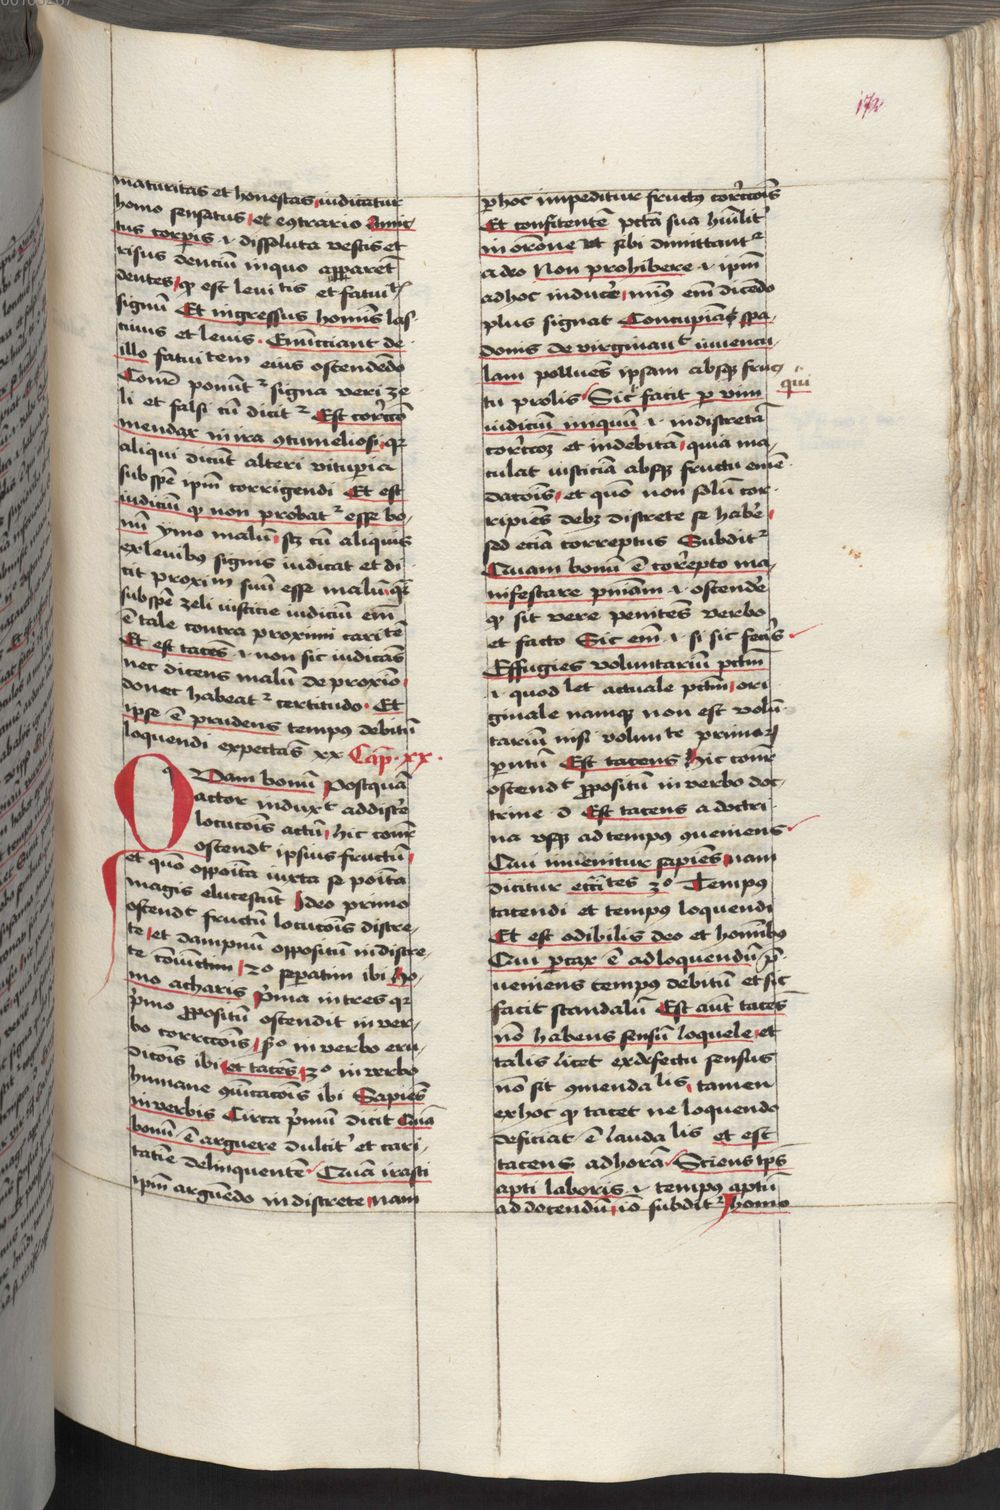 172
maturitas et honestas iudicatur
homo sensatus et eqtrario Amic
tus corpis .i. dissoluta vestis et
risus dentiu inquo apparet
dentes qp est levi tis et fatuit
signu Et ingressus homis las
tivus et levis. Enucciant de
illo fatui tem eius ostendedo
Come ponut signa veri ze
li et falsi cu dicit Est correcco
mendax in ira gtumeliosi qr
aliqui dicut alteri vitupia
sub spe ipm corrigendi Et est
iudiciu qp non probat esse bo
nu ymo malu sz cu aliquis
ex levibg signis iudicat et di
cit proximu suu esse malu qr
sub spe zeli iusticie iudiciu em
e tale contra proximi cari te
Et est taces .i. non sic iudicas
nec dicens malu de proxio
donec habeat certitudo. Et
ipse e prudens tempg debitu
loquendi expectas xx Cap. xx.
Quam bonu Postqua
actor induxt addisce
locucois actu hic come
ostendt ipsius fructu
et quo opposita iuxta se poita
magis elucescut Ideo primo
ostendt fructu locucois discre
te et dampnu oppositu indiscre
te coniuctim 2o sepatim ibi Ho
mo acharis prima in tres qr
primo propositu ostendit in ver
bo correccois so in verbo eru
dicois ibi et taces 3o in verbo
humane quicacois ibi Sapies
in verbis Circa primu dicit Qua
bonu e arguere dulcit et cari
tatie delinquente. Qua irasci
ipm arguedo indiscrete nam
p hoc impeditur fructg correccois
Et confitente pcta sua humilit
in orone ut sibi dimittant
a deo Non prohibere .i. ipm
ad hoc induce ming em dicedo
plus signat Concupias spa
donis de virginavt iuvencu
lam polluens ipsam absqz fruc
tu prolis Sic facit p vim
qui
iudiciu iniquu .i. indiscreta
correccoz et indebita quia ma
culat iusticia absqz fructu eme
datois et quo non solu cor
ripies debz discrete se habe
sed ecia correptus Subdit
Quam bonu e correpto ma
nifestare pniam .i. ostende
qp sit vere penites verbo
et facto Sic em .i. si sic fecis
Effugies voluntariu pctm
.i. quod let actuale pctm ori
ginale namqz non est volu
tariu nisi volun te primor
parentu Est tacens Hic come
ostendt propositu in verbo doc
trine d Est tacens a doctri
na usqz ad tempg queniens
Qui invenitur sapies nam
dicitur eccites 3o Tempg
tacendi et tempg loquendi
Et est odibilis deo et hominibg
Qui pcax e ad loquendu pre
veniens tempg debitu et sic
facit scandalu Est aut taces
no habens sensu loquele et
talis licet ex defectu sensus
no sit gmenda lis tamen
ex hoc qp tacet ne loquendo
deficiat e lauda lis et est
tacens ad hora. Sciens tps
apti laboris .i. tempg aptu
ad docendu io subdit homo